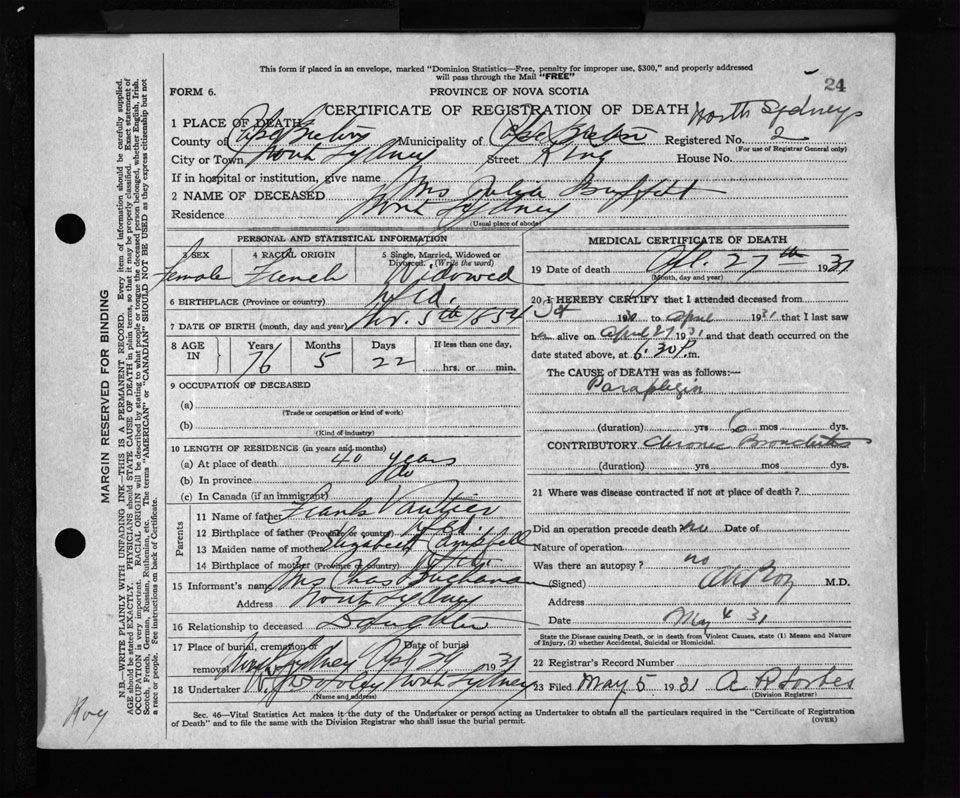 This form if placed in an envelope, marked "Dominion Statistics—Free, penalty for improper use, $300," and properly addressed
will pass through the Mail "FREE"
24
FORM 6.
PROVINCE OF NOVA SCOTIA
CERTIFICATE OF REGISTRATION OF DEATH
North Sydney
1 PLACE OF DEATH
County of Cape Breton Municipality of Cape Breton Registered No. 2
(For use of Registrar General only)
City or Town North Sydney Street King House No.
If in hospital or institution, give name
2 NAME OF DECEASED Mrs Julia Buffett
Residence North Sydney
(Usual place of abode)
PERSONAL AND STATISTICAL INFORMATION
3 SEX 4 RACIAL ORIGIN 5 Single, Married, Widowed or Divorced (Write the word)
Female French Widowed
6 BIRTHPLACE (Province or country) Nfld.
7 DATE OF BIRTH (month, day and year) 5th 1854
8 AGE IN Years Months Days If less than one day,
76 5 22 hrs. or min.
9 OCCUPATION OF DECEASED
(a)
(Trade or occupation or kind of work)
(b)
(Kind of industry)
10 LENGTH OF RESIDENCE (in years and months)
(a) At place of death 40 years
(b) In province do
(c) In Canada (if an immigrant)
Parents
11 Name of father Frank Vautier
12 Birthplace of father (Province or country) Nfld.
13 Maiden name of mother Elizabeth Campbell
14 Birthplace of mother (Province or country) Nfld.
15 Informant's name Mrs Chas Buchanan
Address North Sydney
16 Relationship to deceased Daughter
17 Place of burial, cremation or removal Date of burial
North Sydney Apl 29 1931
18 Undertaker Foley North Sydney
(Name and address)
MEDICAL CERTIFICATE OF DEATH
19 Date of death Apl. 27th 1931
(Month, day and year)
20 I HEREBY CERTIFY that I attended deceased from
to April 1931 that I last saw
h alive on April 27 1931 and that death occurred on the
date stated above, at 6.30 P.m.
The CAUSE of DEATH was as follows:—
Paraplegia
(duration) yrs 6 mos dys.
CONTRIBUTORY Chronic Bronchitis
(duration) yrs mos dys.
21 Where was disease contracted if not at place of death?
Did an operation precede death Date of
Nature of operation
Was there an autopsy? no
(Signed) Roy M.D.
Address
Date May 4 31
State the Disease causing Death, or in death from Violent Causes, state (1) Means and Nature
of Injury, (2) whether Accidental, Suicidal or Homicidal.
22 Registrar's Record Number
23 Filed May 5 1931 A. R. Forbes
(Division Registrar)
Sec. 46—Vital Statistics Act makes it the duty of the Undertaker or person acting as Undertaker to obtain all the particulars required in the "Certificate of Registration
of Death" and to file the same with the Division Registrar who shall issue the burial permit.
(OVER)
MARGIN RESERVED FOR BINDING
N.B.—WRITE PLAINLY WITH UNFADING INK—THIS IS A PERMANENT RECORD. Every item of information should be carefully supplied.
AGE should be stated EXACTLY. PHYSICIANS should STATE CAUSE OF DEATH in plain terms, so that it may be properly classified. Exact statement of
OCCUPATION is very important. RACIAL ORIGIN will be described by stating to what people or tongue the deceased person belonged, whether English, Irish,
Scotch, French, German, Russian, Ruthenian, etc. The terms "AMERICAN" or "CANADIAN" SHOULD NOT BE USED as they express citizenship but not
a race or people. See instructions on back of Certificate.
Roy